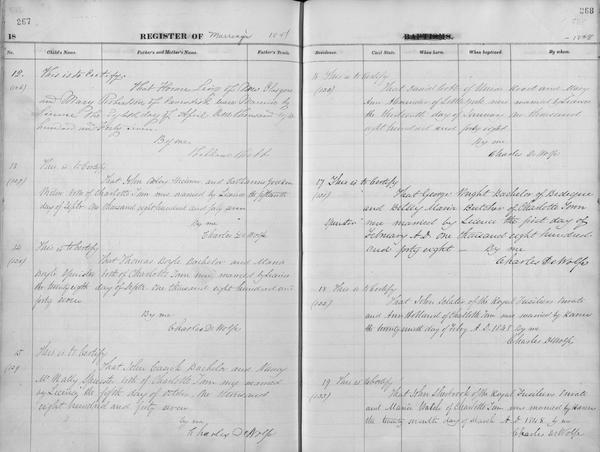 267
18
REGISTER OF Marriages 1847
No. Child's Name. Father's and Mother's Name. Father's Trade.
12. This is to Certify,
That Horace of New Glasgow
and Mary of were Married by
Licence this Eighth day of April One thousand eight
hundred and forty seven
By me
William Webb
13. This is to Certify
That John and Catharine
both of Charlotte Town were married by Licence the fifteenth
day of Septr one thousand eight hundred and forty seven
By me
Charles DeWolfe
14. This is to Certify
That Thomas Doyle Bachelor and Maria
Doyle Spinster both of Charlotte Town were married by Licence
the twenty eighth day of Septr one thousand eight hundred and
forty seven
By me
Charles DeWolfe
15 This is to Certify
That John Bachelor and Mary
McNally Spinster both of Charlotte Town were married
by Licence the fifth day of October one thousand
eight hundred and forty seven
by me
Charles DeWolfe
268
BAPTISMS. 1848
Residence. Civil State. When born. When baptized. By whom.
16 This is to Certify
That Daniel both of Union Road and Mary
Ann of Little York were married by Licence
the day of January one thousand
eight hundred and forty eight
By me
Charles DeWolfe
17 This is to Certify
That George Wright Bachelor of Bedeque
and Betsy Maria Butcher of Charlotte Town
Spinster were married by Licence the first day of
February A.D. one thousand eight hundred
and forty eight - By me
Charles DeWolfe
18 This is to Certify
That John of the Royal Fusiliers Private
and Ann Holland of Charlotte Town were married by Banns
the twenty day of Feby A.D. 1848 By me
Charles DeWolfe
19 This is to Certify
That John of the Royal Fusiliers Private
and Maria Walsh of Charlotte Town were married by Banns
the twenty ninth day of March A.D. 1848 by me
Charles DeWolfe